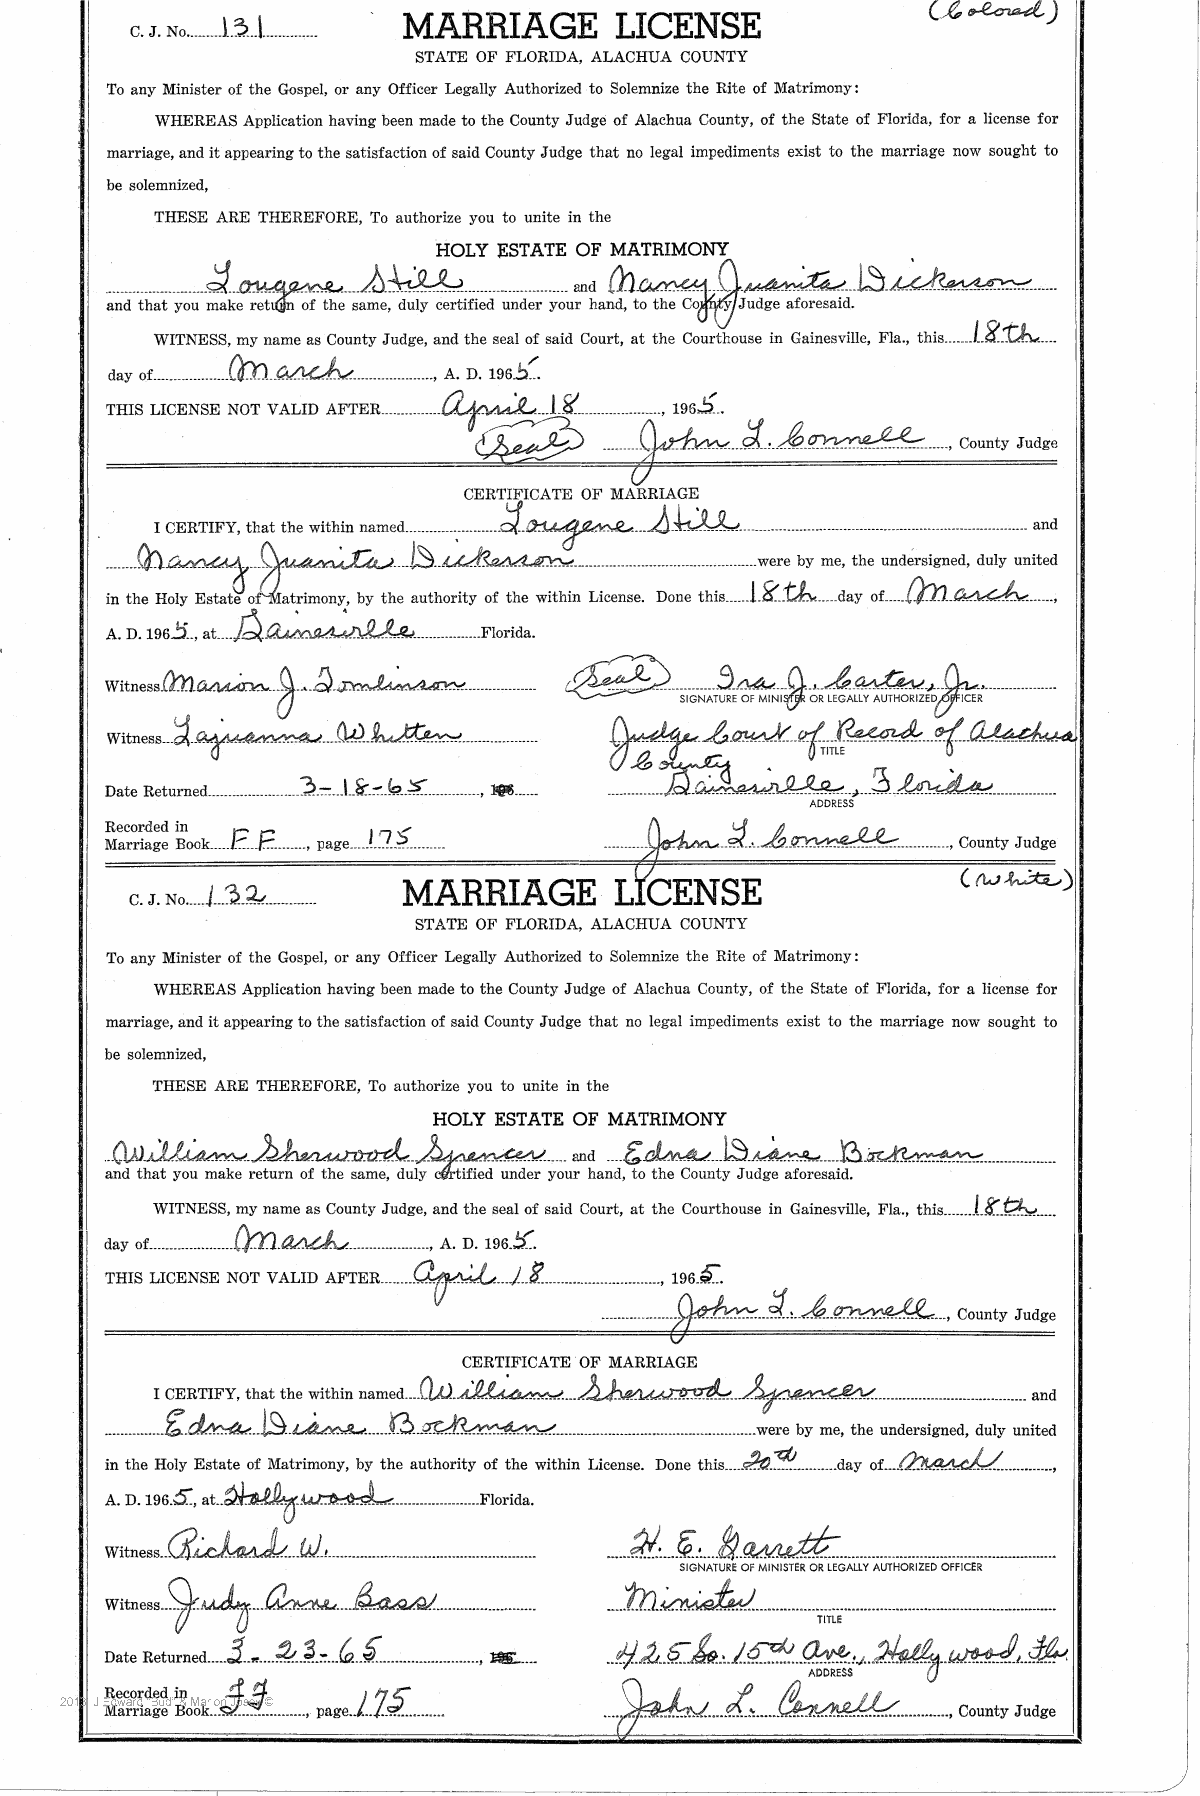 (Colored)
C. J. No. 131 MARRIAGE LICENSE
STATE OF FLORIDA, ALACHUA COUNTY
To any Minister of the Gospel, or any Officer Legally Authorized to Solemnize the Rite of Matrimony:
WHEREAS Application having been made to the County Judge of Alachua County, of the State of Florida, for a license for
marriage, and it appearing to the satisfaction of said County Judge that no legal impediments exist to the marriage now sought to
be solemnized,
THESE ARE THEREFORE, To authorize you to unite in the
HOLY ESTATE OF MATRIMONY
Lougene Still and Nancy Juanita Dickerson
and that you make return of the same, duly certified under your hand, to the County Judge aforesaid.
WITNESS, my name as County Judge, and the seal of said Court, at the Courthouse in Gainesville, Fla., this 18th
day of March, A. D. 1965.
THIS LICENSE NOT VALID AFTER April 18, 1965.
(Seal) John L. Connell, County Judge
CERTIFICATE OF MARRIAGE
I CERTIFY, that the within named Lougene Still and
Nancy Juanita Dickerson were by me, the undersigned, duly united
in the Holy Estate of Matrimony, by the authority of the within License. Done this 18th day of March,
A. D. 1965, at Gainesville Florida.
Witness Marion J. Tomlinson (Seal) Ira J. Carter, Jr.
SIGNATURE OF MINISTER OR LEGALLY AUTHORIZED OFFICER
Witness Lajuanna Whitten Judge Court of Record of Alachua
TITLE
County
Date Returned 3-18-65, 196 Gainesville, Florida
ADDRESS
Recorded in
Marriage Book FF, page 175 John L. Connell, County Judge
(White)
C. J. No. 132 MARRIAGE LICENSE
STATE OF FLORIDA, ALACHUA COUNTY
To any Minister of the Gospel, or any Officer Legally Authorized to Solemnize the Rite of Matrimony:
WHEREAS Application having been made to the County Judge of Alachua County, of the State of Florida, for a license for
marriage, and it appearing to the satisfaction of said County Judge that no legal impediments exist to the marriage now sought to
be solemnized,
THESE ARE THEREFORE, To authorize you to unite in the
HOLY ESTATE OF MATRIMONY
William Sherwood Spencer and Edna Diane Bockman
and that you make return of the same, duly certified under your hand, to the County Judge aforesaid.
WITNESS, my name as County Judge, and the seal of said Court, at the Courthouse in Gainesville, Fla., this 18th
day of March, A. D. 1965.
THIS LICENSE NOT VALID AFTER April 18, 1965.
John L. Connell, County Judge
CERTIFICATE OF MARRIAGE
I CERTIFY, that the within named William Sherwood Spencer and
Edna Diane Bockman were by me, the undersigned, duly united
in the Holy Estate of Matrimony, by the authority of the within License. Done this 20th day of March,
A. D. 1965, at Hollywood Florida.
Witness Richard W. H. E. Garrett
SIGNATURE OF MINISTER OR LEGALLY AUTHORIZED OFFICER
Witness Judy Anne Bass Minister
TITLE
Date Returned 3-23-65, 196 425 So. 15th Ave., Hollywood, Fla.
ADDRESS
Recorded in
Marriage Book FF, page 175 John L. Connell, County Judge